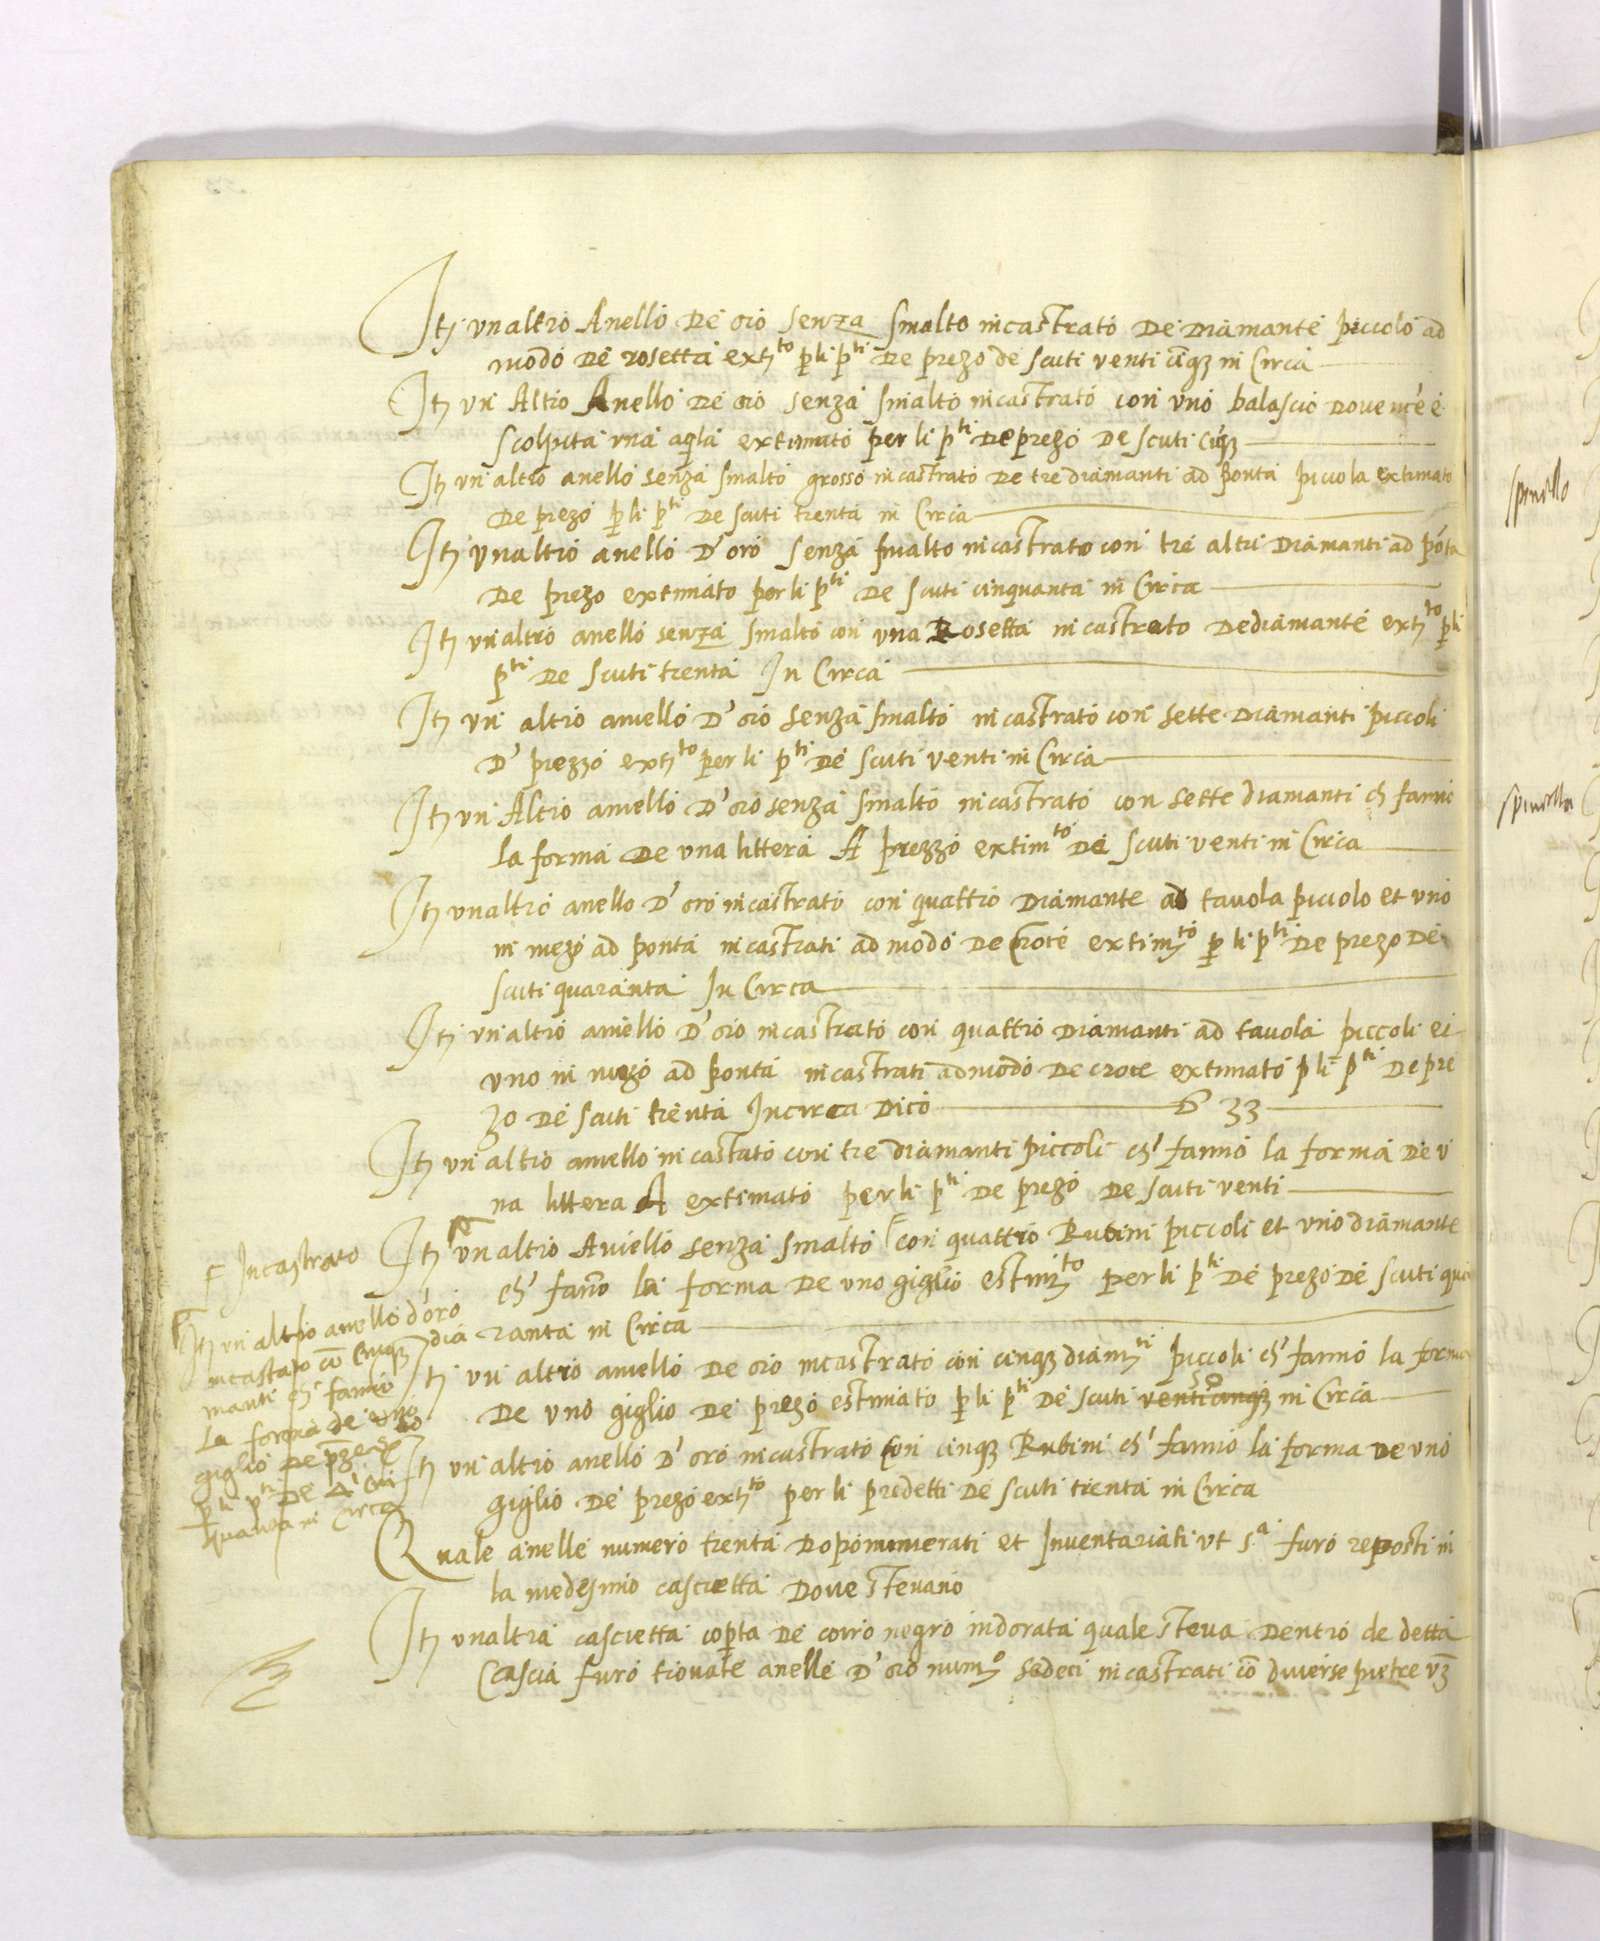 Itꝫ unaltro Anello De oro senza smalto incastrato De Diamante piccolo ad
modo De rosetta extꝫto ꝑ li pti De prezo de scuti venti cinqꝫ in Circa
Itꝫ un Altro Anello De oro senza smalto incastrato con uno balascio Dove nce e
scolpita una aqla extimato per li pti De prezo De scuti cinqꝫ
Itꝫ un altro anello senza smalto grosso incastrato De tre diamanti ad ponta piccola extimato
De prezo ꝑ li pti De scuti trenta in Circa
Itꝫ unaltro anello D' oro senza smalto incastrato con tre altri Diamanti ad pōta
De prezo extimato per li pti De scuti cinquanta in Circa
Itꝫ un altro anello senza smalto con una Rosetta incastrato De diamante extꝫto ꝑ li
pti De scuti trenta In Circa
Itꝫ un altro aniello D' oro senza smalto incastrato con sette Diamanti piccoli
D' prezzo extꝫto per li pti De scuti venti in Circa
Itꝫ un Altro aniello D' oro senza smalto incastrato con sette diamanti ch fanno
la forma De una littera A prezzo extimto De scuti venti in Circa
Itꝫ unaltro anello D' oro incastrato con quattro Diamante ad tavola piccolo et uno
in mezo ad ponta incastrati ad modo De croce extimꝫto ꝑ li pti De prezo De
scuti quaranta In Circa
Itꝫ un altro aniello D' oro incastrato con quattro Diamanti ad tavola piccoli et
uno in mezo ad ponta incastrati ad modo De croce extimato ꝑ li pti De pre
zo De scuti trenta In circa Dico 33
Itꝫ un altro aniello incastato con tre diamanti piccoli ch' fanno la forma De u
na littera A extimato per li pti De prezo De scuti venti
Itꝫ un altro Aniello senza smalto con quattro Rubini piccoli et uno diamante
ch' fanno la forma De uno giglio estimꝫto per li pti De prezo De scuti qua
ranta in Circa
Incastrato
Itꝫ un altro anello d'oro
incastato cō cinque dia
manti ch' fanno
la forma de uno
giglio De prezo
ꝑ li pti De
quanta in Circa
Itꝫ un altro aniello De oro incastrato con cinqꝫ diamꝫti piccoli ch' fanno la forma
50
De uno giglio De prezo estimato ꝑ li pti De scuti venti cinqꝫ in Circa
Itꝫ un altro anello D' oro incastrato con cinqꝫ Rubini ch' fanno la forma De uno
giglio De prezo extꝫto per li predetti De scuti trenta in Circa
Quale anelle numero trenta Dopo numerati et Inventariati ut sa furo reposti in
la medesmo cascietta Dove stevano
Itꝫ unaltra cascietta coꝑta De coiro negro indorata quale steva Dentro de detta
Cascia furo trovate anelle D' oro numo sedeci incastrati cō diverse pietre vꝫ
spinello
spinella